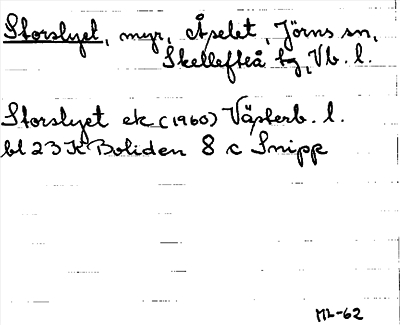 Storslyet, myr, Åselet, Jörns sn,
Skellefteå tg, Vb. l.
Storslyet ek (1960) Västerb. l.
bl 23 K Boliden 8 c Snipp
ML-62